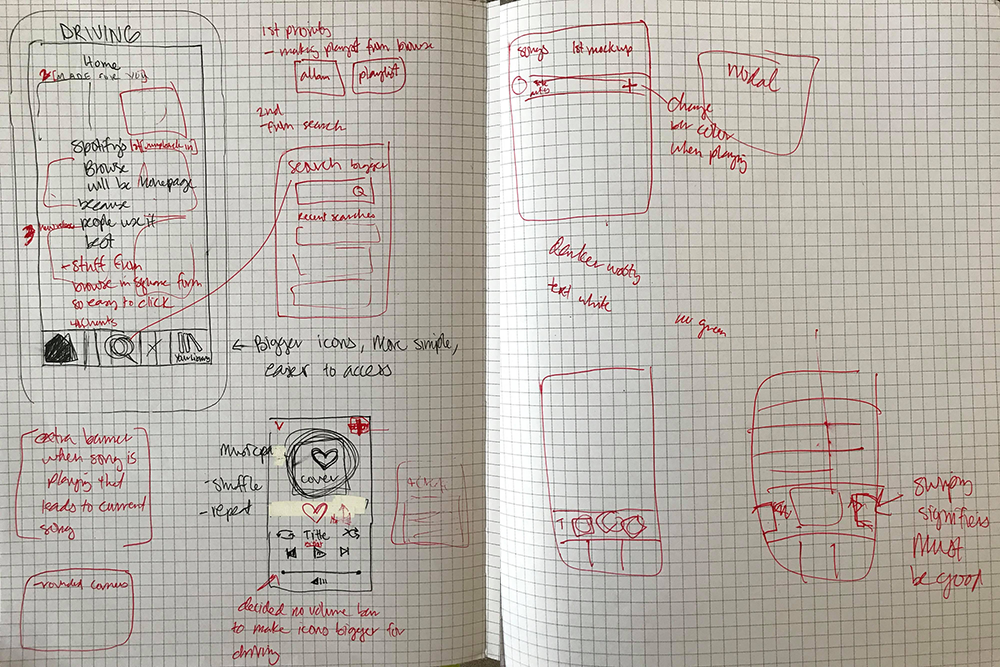 DRIVING
Home
MADE FOR YOU
Spotify's
Browse
will be Homepage
because
people use it
best
- stuff from
browse in square form
so easy to click
Your library
← Bigger icons, more simple,
easier to access
1st priority
- making playlist from browse
album
playlist
2nd
- from search
search bigger
recent searches
extra banner
when song is
playing that
leads to current
song
- rounded corners
- shuffle
- repeat
cover
Title
decided no volume bar
to make icons bigger for
driving
songs 1st mockup
+
change
bar color
when playing
modal
text white
no green
swiping
signifiers
must
be good